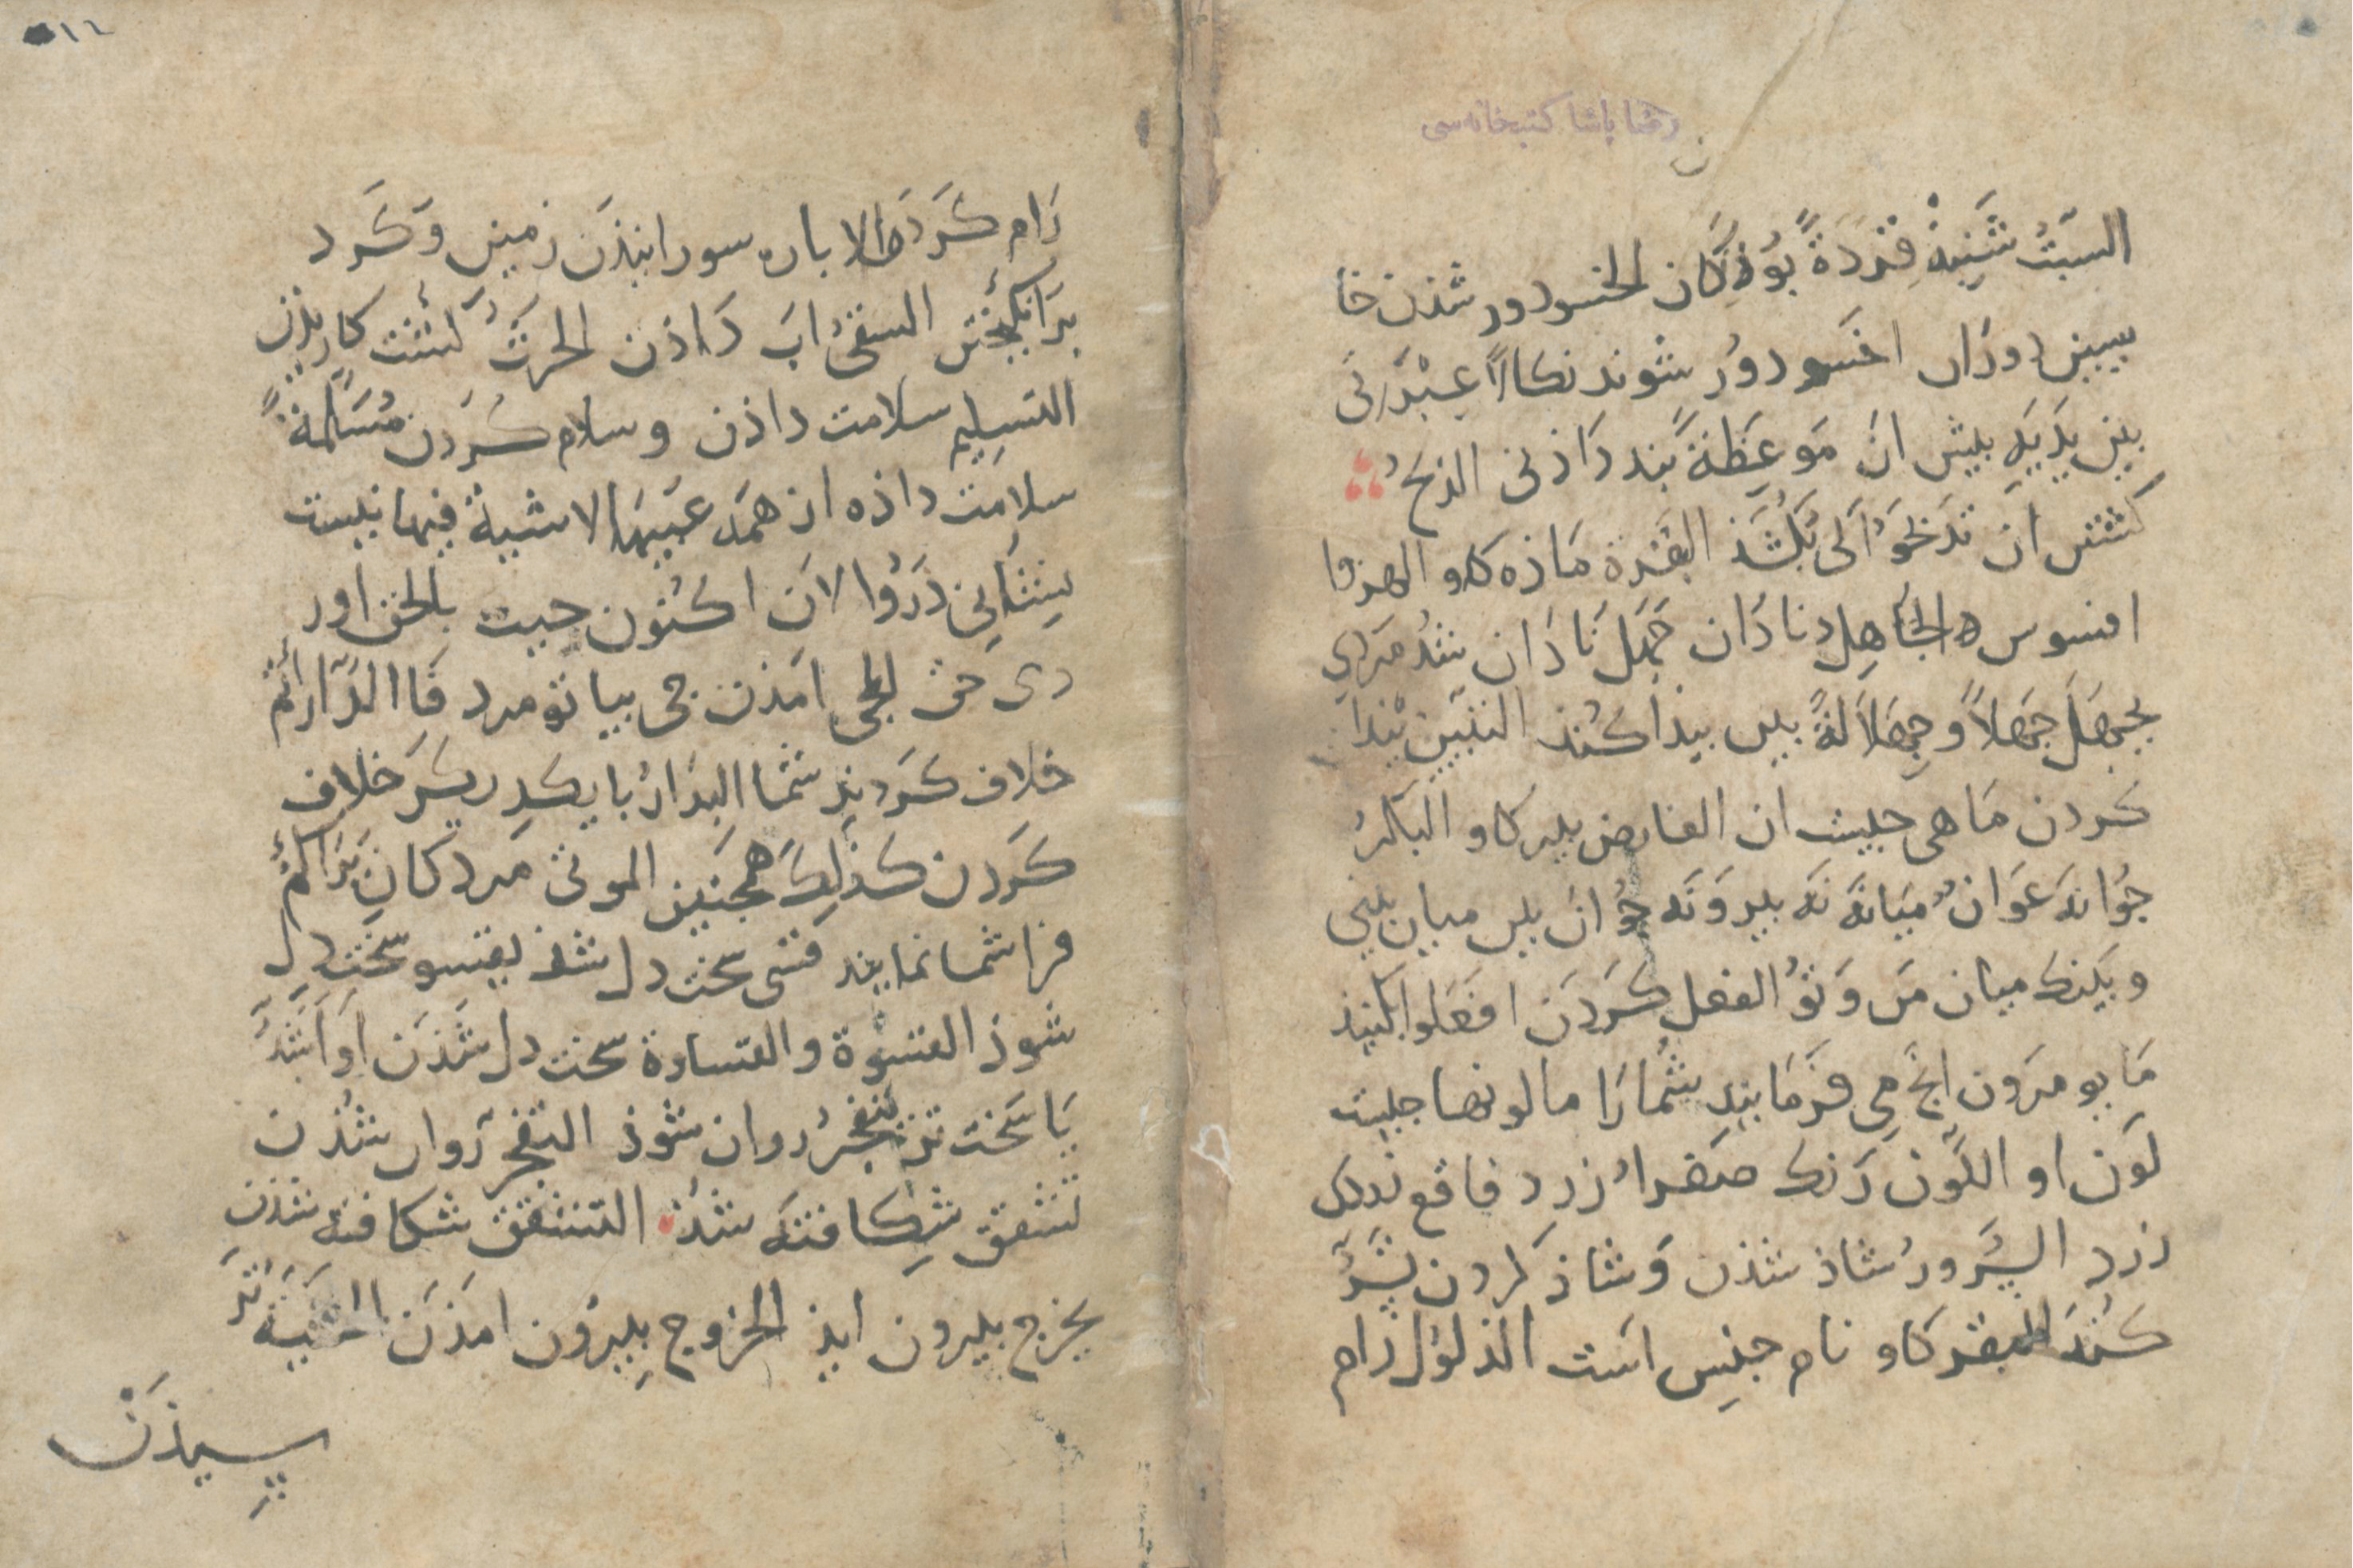 رضا پاشا كتبخانه سى
السَّبْتُ شَنبِهْ قِرَدَةً بُوزنَگان الخسو دور شذن خا
سيين دوران اخسو دُور شوند نكالاً عِبْرَتى
بين يَدَيَه بيش ان مَوعِظَةً بَند دَاذنى الذبحُ
كشتن ان تَذبَحُوا كى بكُشَذ البقرة مَاذه كاو الهزوا
افسوس الجَاهِل نادَان جَهِلَ نَاذان شُد مَردى
يجهَلُ جَهلاً وجهَالَةً يبين بيذا كُنذ التبيين بَيذا
كردن مَا هى جيست ان الفارض بير كاو البكرُ
جُوانَه عَوَانٌ مَيَانَهْ نَه بير وَنَه جُوان بين ميان بينى
وبَينك ميان مَن وَتُو الفعل كَردَن افعَلوا بكنيذ
مَا يومرَون انچ مى فرمَايند شُمارَا ما لونها جيست
لَون او اللَّون رَنك صَفراءُ زرد فاقع نيك
زرد السُّرور شاذ شذن وَشاذ كردن تَسُرُّ
كُند البقر كاو نام جنِس است الذلوُل رَام
١٦
رَام كَردَه الاباره سورانيذَن زمين وَكَرد
بَرانكيختن السقىُ ابَ دَاذن الحرَثُ كَشت كاريذن
التسليم سلامت داذن وسلام كَردن مُسَلَّمَةٌ
سلامت داذه از همَه عَيبهَا لا شيةَ فيها نيست
نِشَانى دَرُوا لانَ اكنُون جيت بالحق اور
دى حق المجى امَذن جى بيا تو مرد فَاالدَّارأتُم
خلاف كَرديذ شما التدارُ با يكديكَر خلاف
كَردن كذلِكَ همچنين الموتى مردكان يَراكُم
فرا شما نمايند قسى سخت دل شذ يقسو سخت دل
شوذ القسوة والقساوة سخت دل شُذَن اَو اَشَدُّ
يَا سَخت تر يتفجّرُ روان شوذ التفجّر رَوان شُذن
تشقق شِكافته شذ التشقق شكافته شذن
يخرج بيرون ايذ الخروج بِيرُون امَذَن الخشيَة تَر
سيذَن